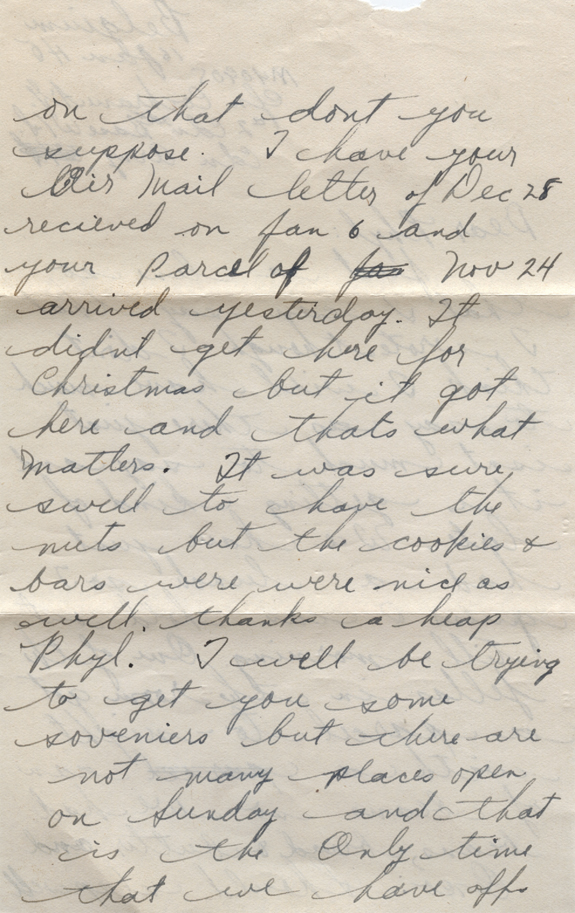 on that dont you
suppose. I have your
Air Mail letter of Dec 28
recieved on Jan 6 and
your Parcel of Jan Nov 24
arrived yesterday. It
didnt get here for
Christmas but it got
here and thats what
matters. It was sure
swell to have the
nuts but the cookies &
bars were were nice as
well. thanks a heap
Phyl. I will be trying
to get you some
soveniers but there are
not many places open
on Sunday and that
is the Only time
that we have off.